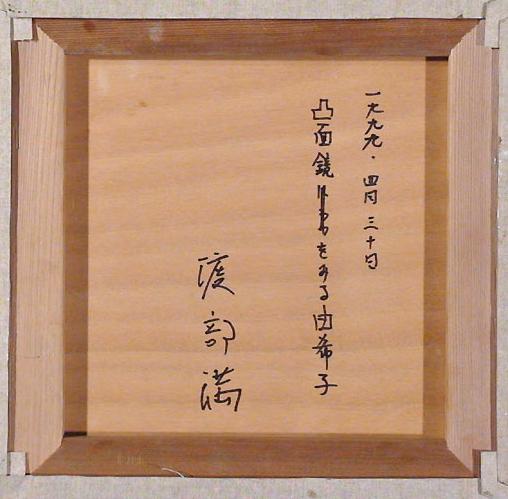 一九九九・四月三十日
凸面鏡をみる由希子
渡部満